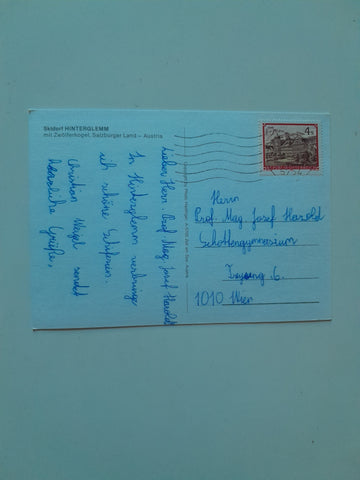 Skidorf HINTERGLEMM
mit Zwölferkogel, Salzburger Land – Austria
Lieber Herr Prof. Mag. Josef Harold
In Hinterglemm verbring
ich schöne Skiferien.
Christian Nagl sendet
herzliche Grüße,
4 S
Herrn
Prof. Mag. Josef Harold
Schottengymnasium
1010 Wien